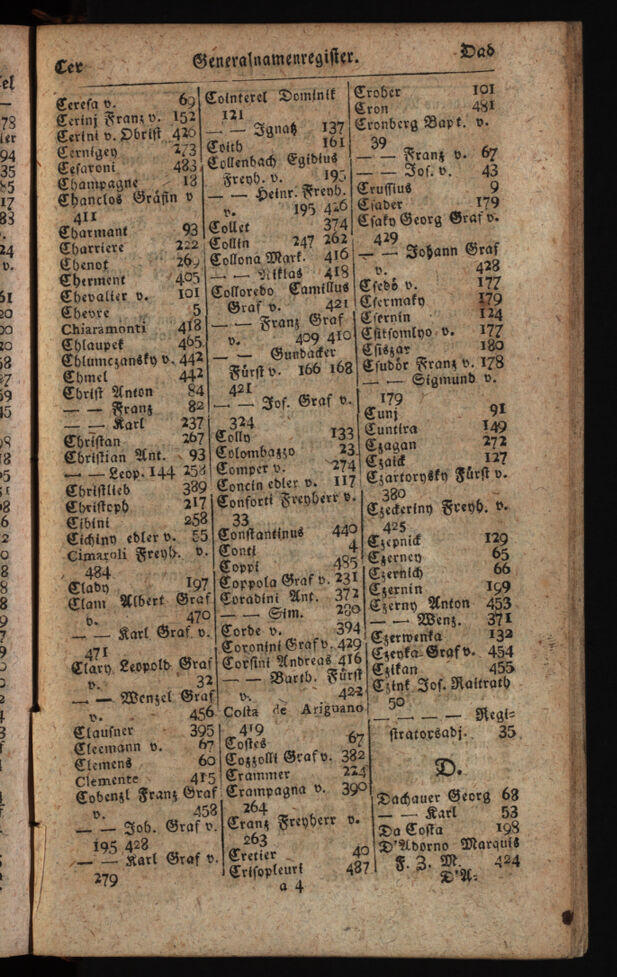 Cer
Generalnamenregister.
Dad
Ceresa v. 69
Cerinj Franz v. 152
Cerini v. Obrist 420
Cernigey 273
Cesaroni 483
Champagne 13
Chanclos Gräfin v
411
Charmant 93
Charriere 222
Chenot 269
Cherment 405
Chevalier v. 101
Chevre 5
Chiaramonti 418
Chlaupek 465
Chlumczansky v. 442
Chmel 442
Christ Anton 84
— — Franz 82
— — Karl 237
Christan 267
Christian Ant. 93
— — Leop. 144 258
Christlieb 389
Christoph 217
Cibini 258
Cichiny edler v. 55
Cimaroli Freyh. v.
484
Clady 197
Clam Albert Graf
v. 470
— — Karl Graf v.
471
Clary Leopold Graf
v. 32
— — Wenzel Graf
v. 456
Clausner 395
Cleemann v. 67
Clemens 60
Clemente 415
Cobenzl Franz Graf
v. 458
— — Joh. Graf v.
195 428
— — Karl Graf v.
279
Cointerel Dominik
121
— — Ignatz 137
Coith 161
Collenbach Egidius
Freyh. v. 195
— — Heinr. Freyh.
v. 195 426
Collet 374
Collin 247 262
Collona Mark. 416
— — Niklas 418
Colloredo Camillus
Graf v. 421
— — Franz Graf
v. 409 410
— — Gundacker
Fürst v. 166 168
421
— — Jos. Graf v.
324
Colly 133
Colombazzo 23
Comper v. 274
Concin edler v. 117
Conforti Freyherr v.
33
Constantinus 440
Conti 4
Coppi 485
Coppola Graf v. 231
Coradini Ant. 372
— — Sim. 280
Corde v. 394
Coronini Graf v. 429
Corsini Andreas 416
— — Barth. Fürst
v. 422
Costa de Ariguano
419
Costes 67
Cozzolli Graf v. 382
Crammer 224
Crampagna v. 390
264
Cranz Freyherr v.
263
Cretier 40
Crisopleuri 487
a 4
Croher 101
Cron 481
Cronberg Bapt. v.
39
— — Franz v. 67
— — Jos. v. 43
Crussius 9
Csader 179
Csaky Georg Graf v.
429
— — Johann Graf
v. 428
Csedö v. 177
Csermaky 179
Csernin 124
Csitsomlyo v. 177
Csiszar 180
Csudör Franz v. 178
— — Sigmund v.
179
Cunj 91
Cuntira 149
Czagan 272
Czaick 127
Czartorysky Fürst v.
380
Czeckeriny Freyh. v.
425
Czepnick 129
Czerney 65
Czernich 66
Czernin 199
Czerny Anton 453
— — Wenz. 371
Czerwenka 132
Czeyka Graf v. 454
Czikan 455
Czink Jos. Raitrath
50
— — — — Regi-
stratorsadj. 35
D.
Dachauer Georg 68
— — Karl 53
Da Costa 198
D'Adorno Marquis
F. Z. M. 424
D'A-